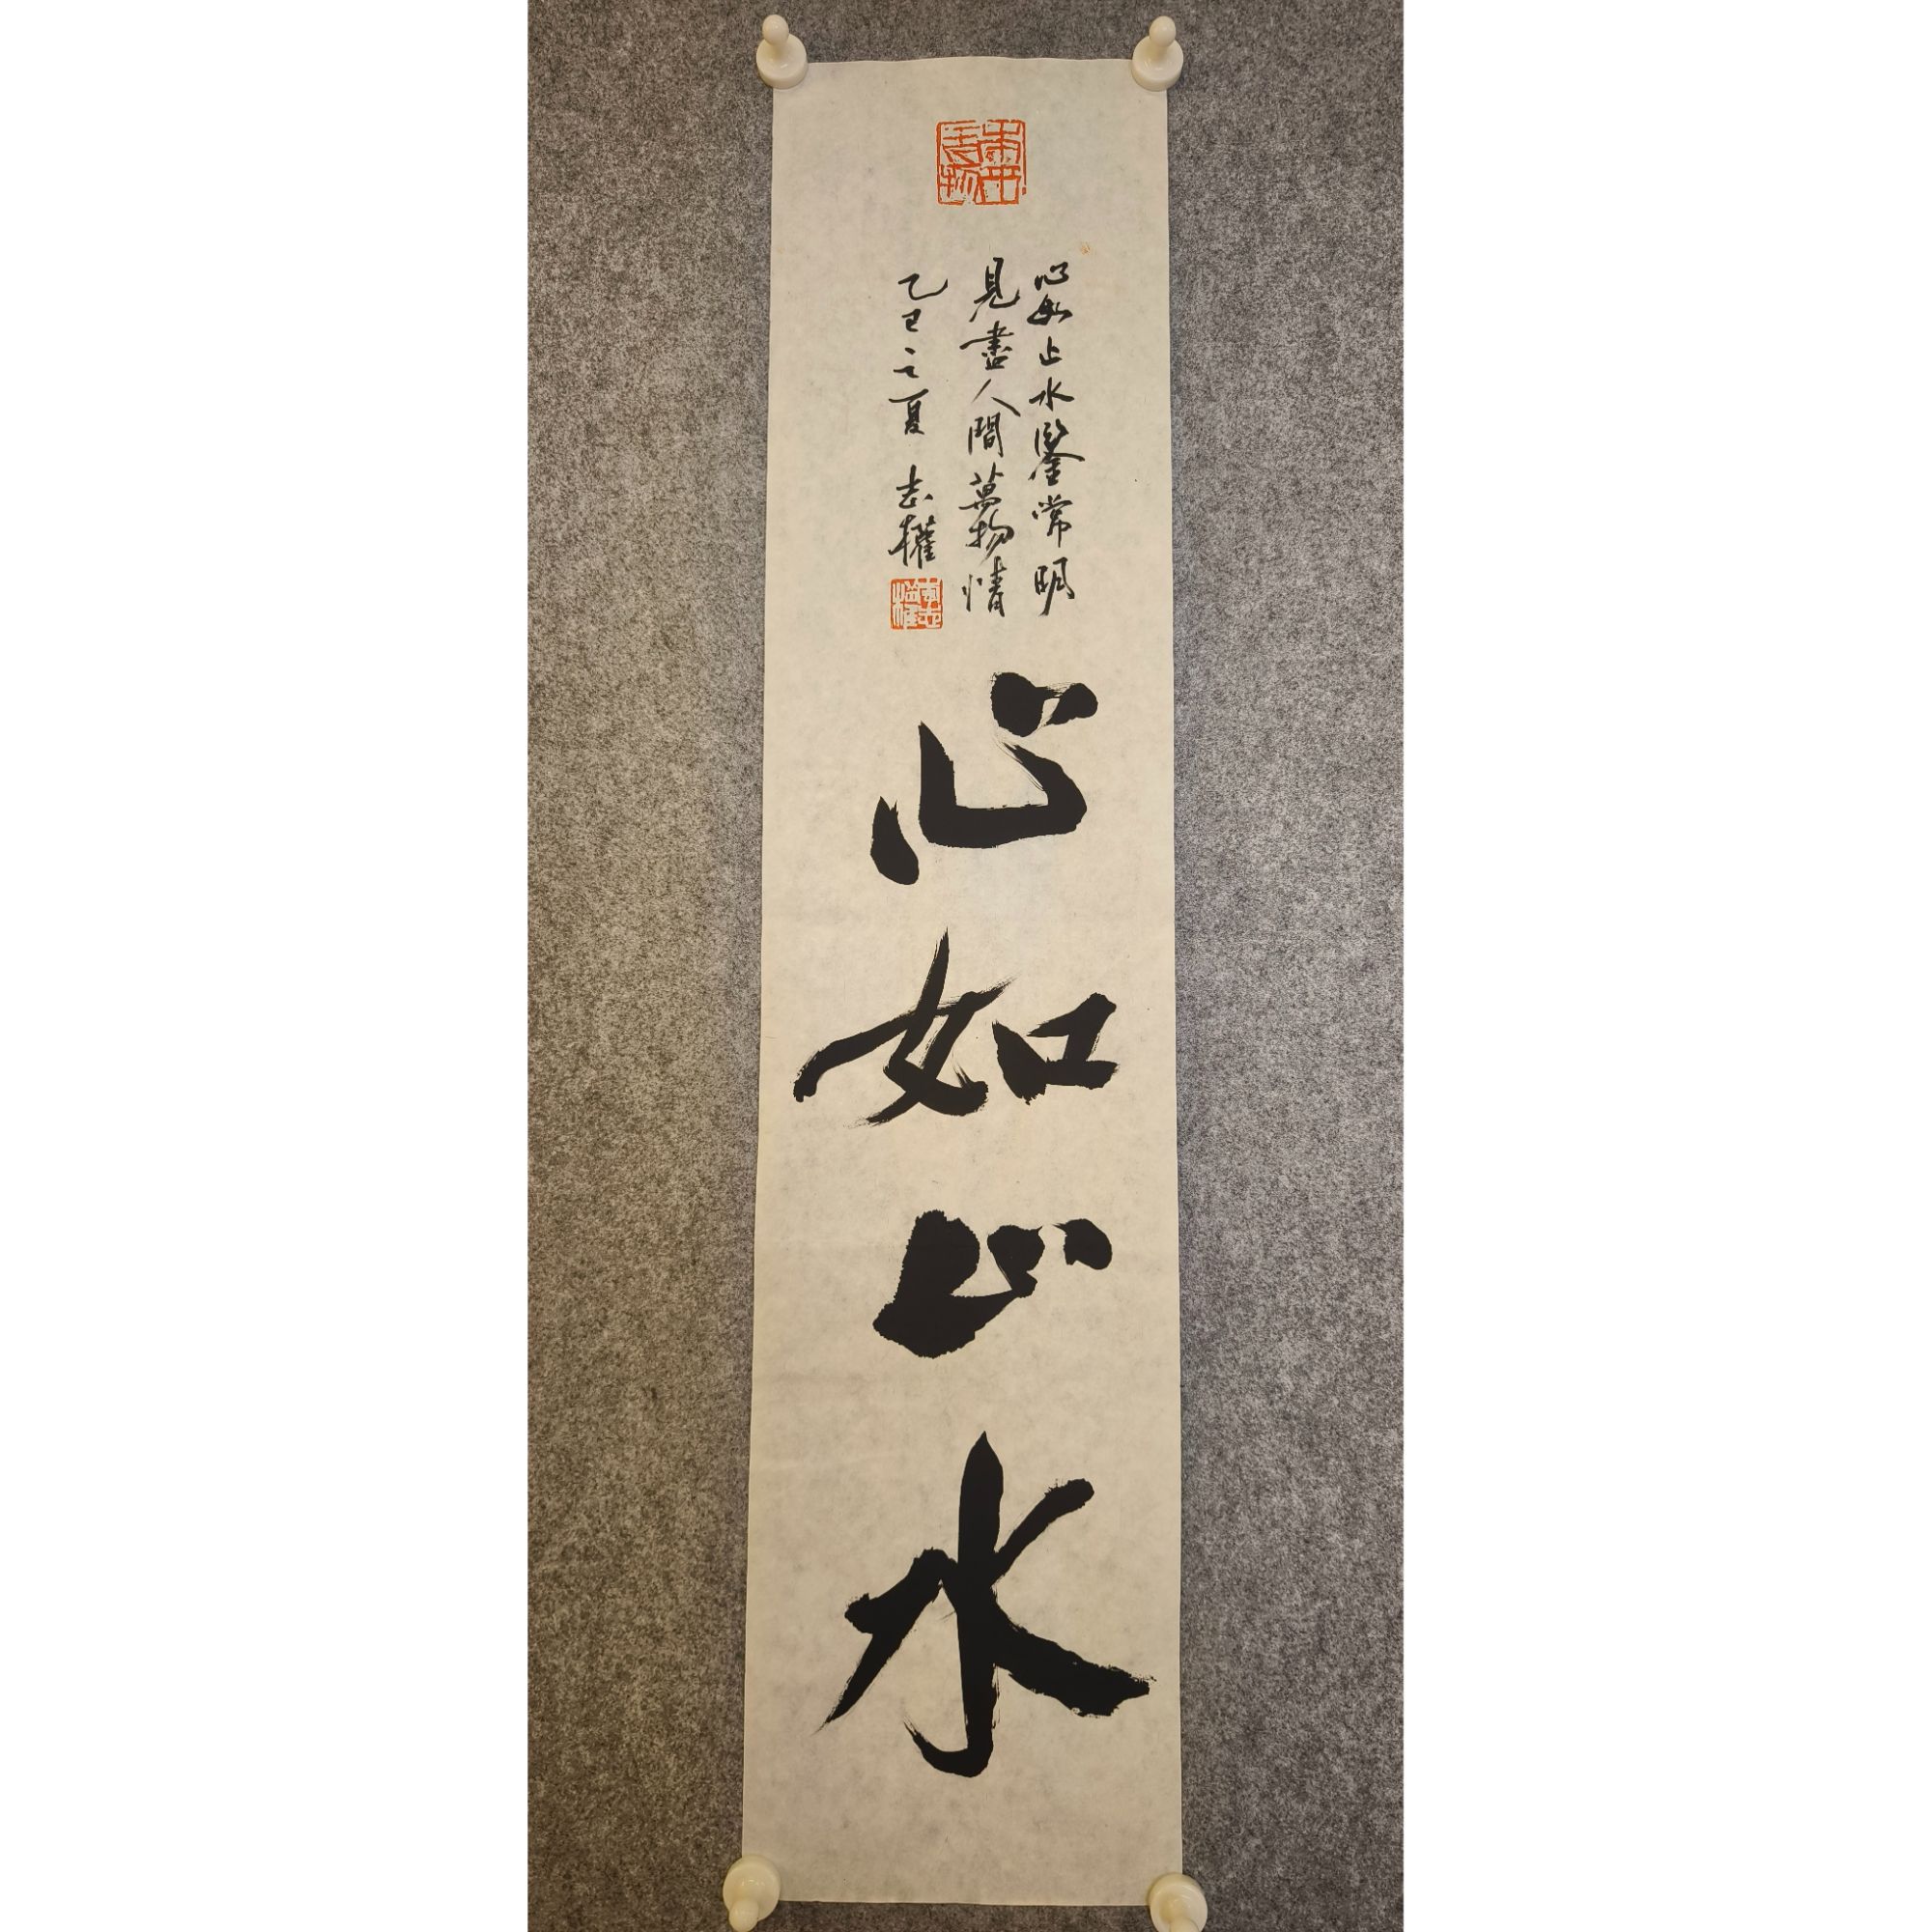 心如止水鑒常明
見盡人間萬物情
乙巳之夏 志權
心如止水